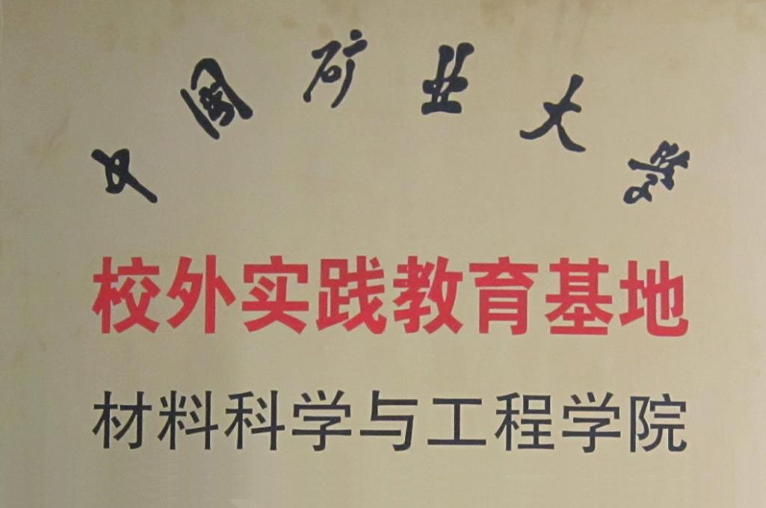 中国矿业大学
校外实践教育基地
材料科学与工程学院